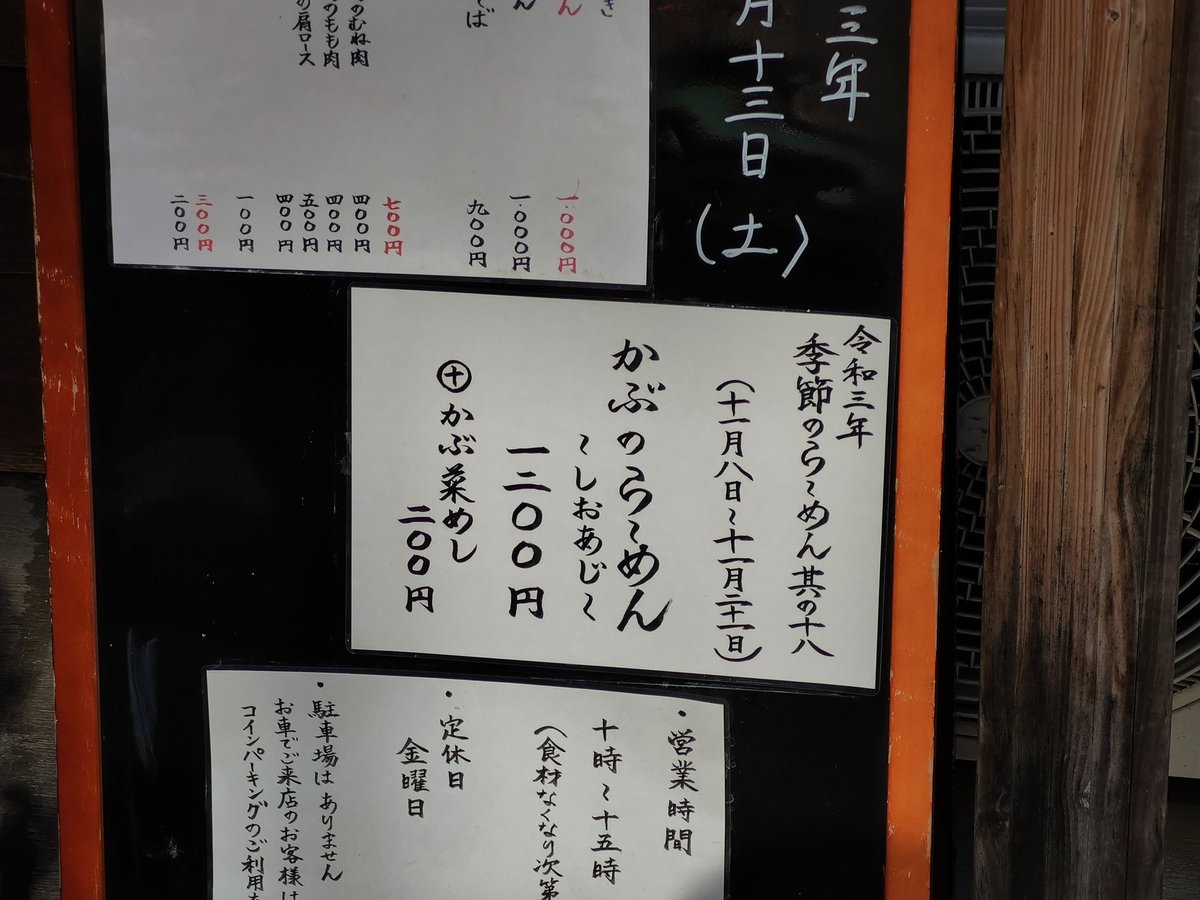 三年
月十三日
(土)
き
ん
一.〇〇〇円
ん
一.〇〇〇円
そば
九〇〇円
七〇〇円
のむね肉
四〇〇円
のもも肉
四〇〇円
の肩ロース
五〇〇円
四〇〇円
一〇〇円
三〇〇円
二〇〇円
令和三年
季節のら〜めん其の十八
(十一月八日〜十一月二十一日)
かぶのら〜めん
〜しおあじ〜
一二〇〇円
㊉かぶ菜めし
二〇〇円
・営業時間
十時〜十五時
(食材なくなり次第
・定休日
金曜日
・駐車場はありません
お車でご来店のお客様は
コインパーキングのご利用を